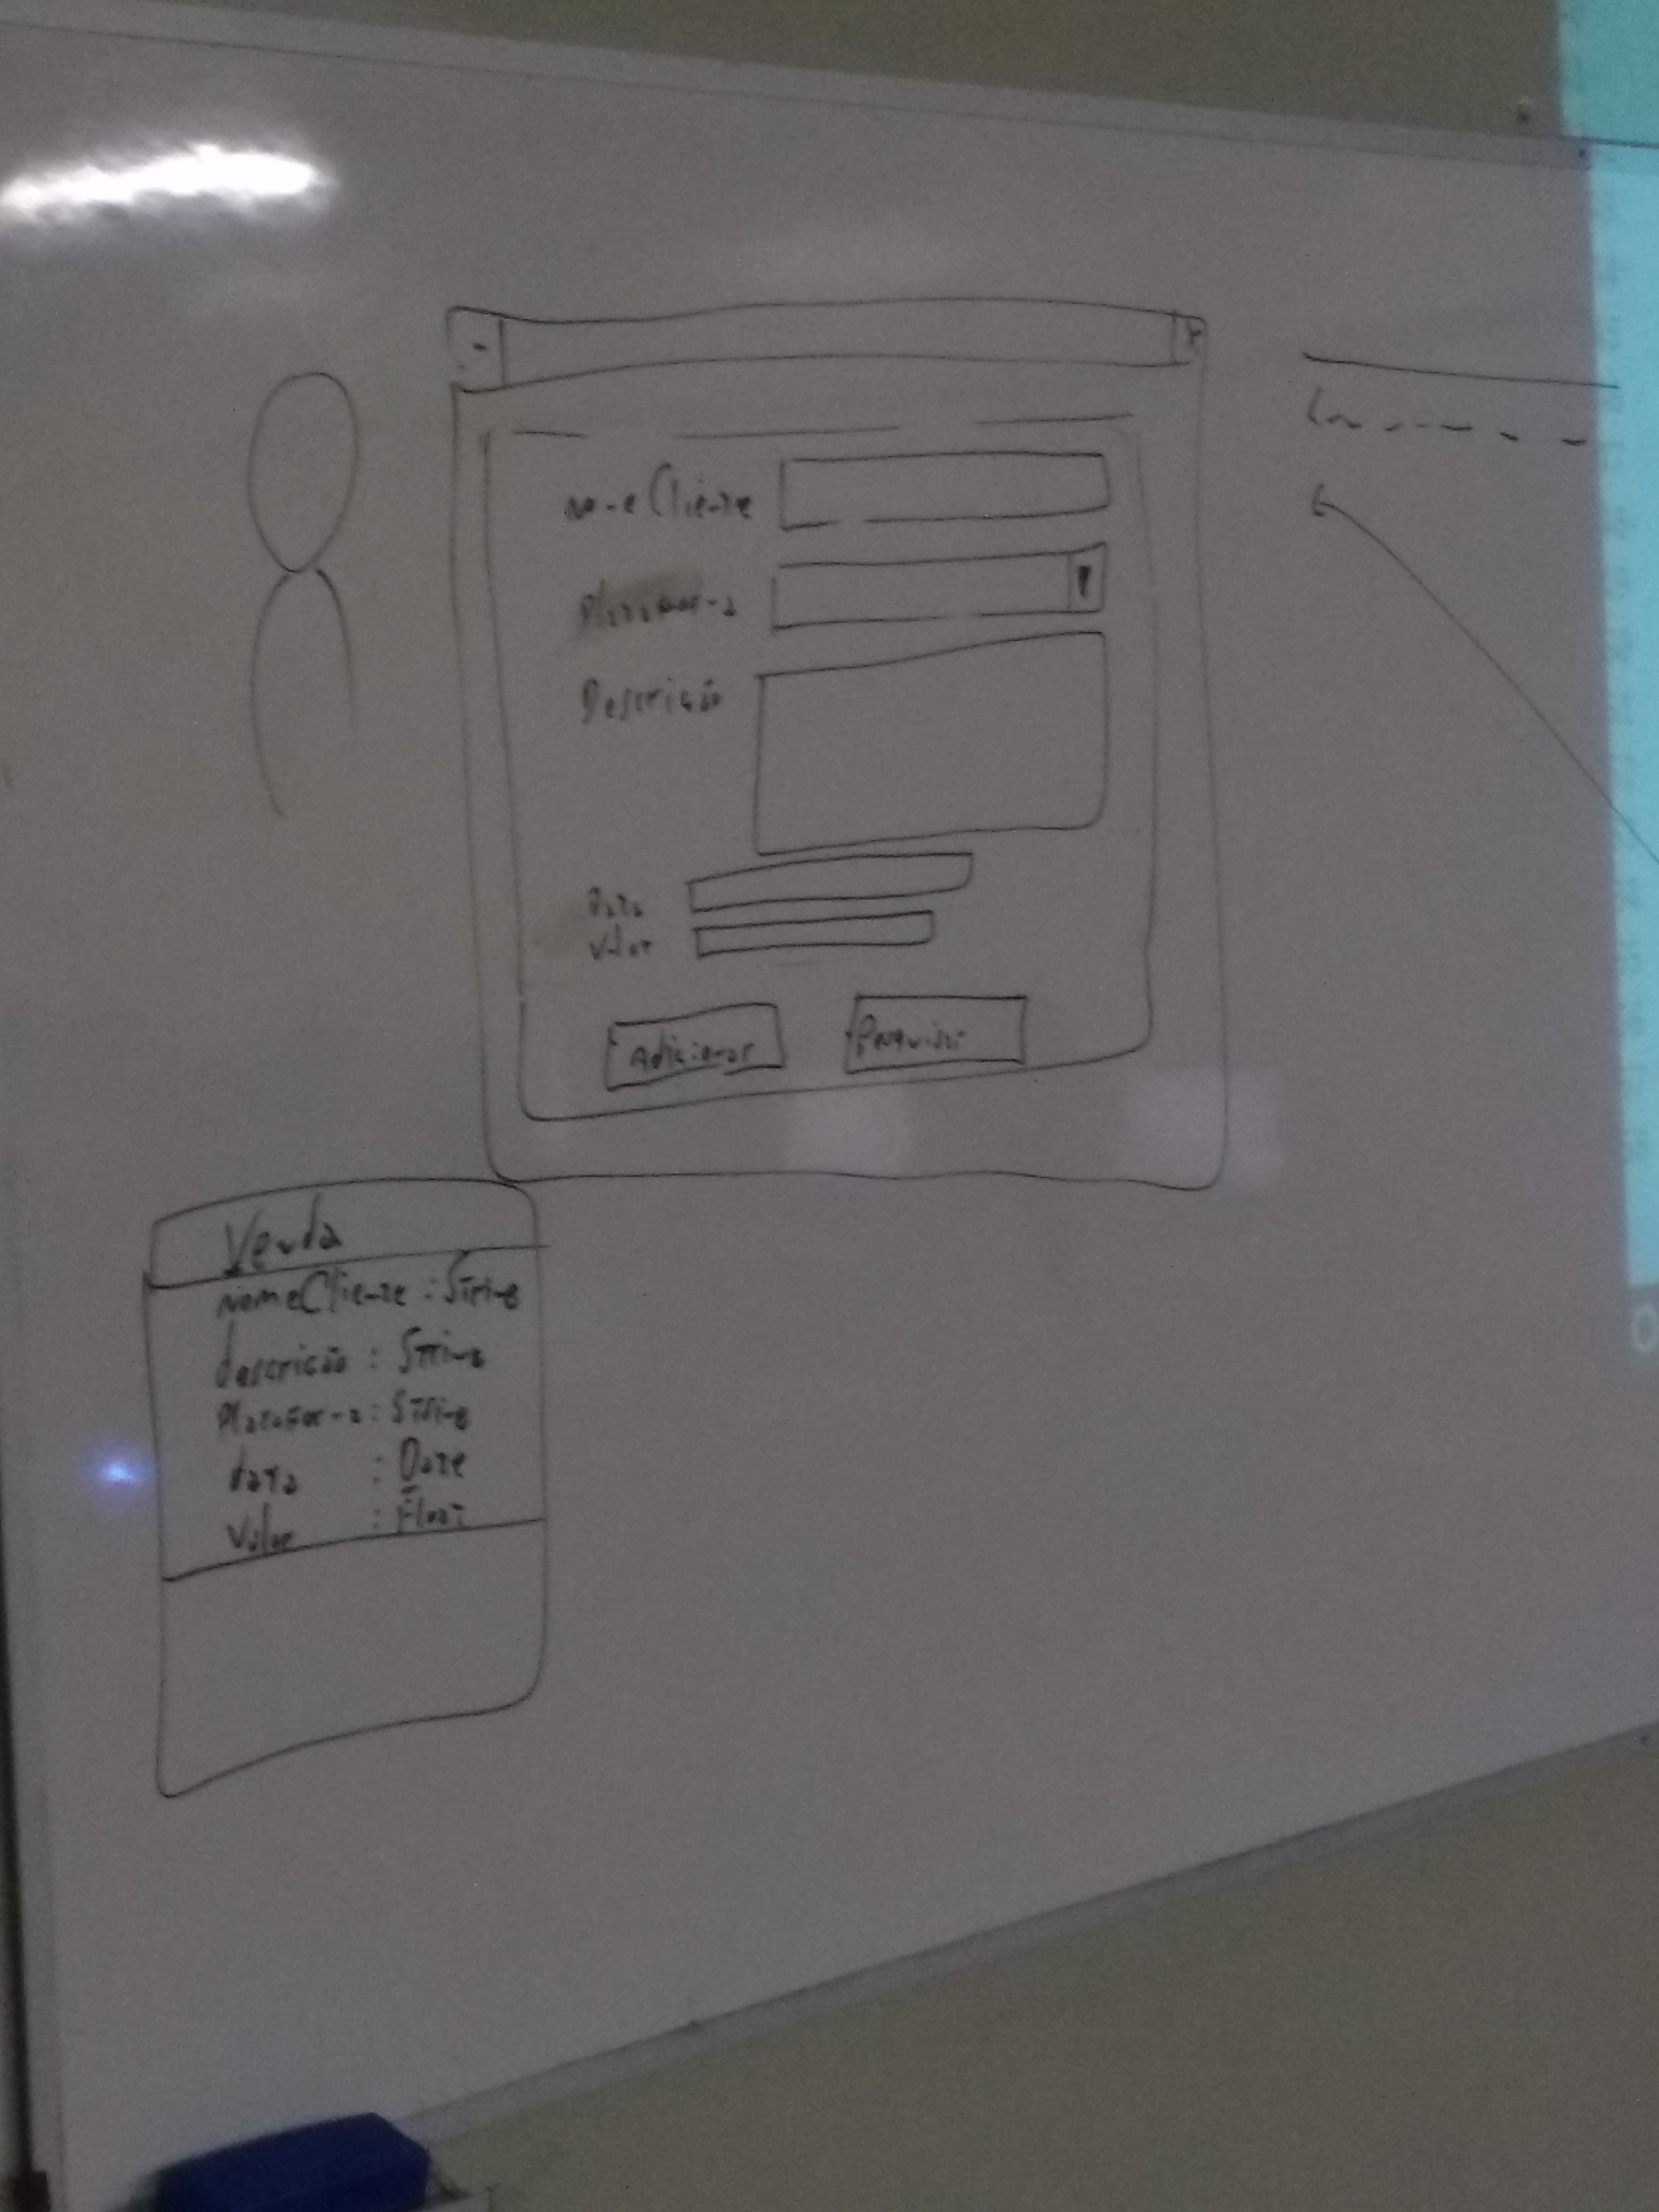 nomeCliente
Plataforma
Descrição
Data
Valor
Adicionar
Pesquisar
Venda
nomeCliente : String
descrição : String
Plataforma : String
data : Date
Valor : Float